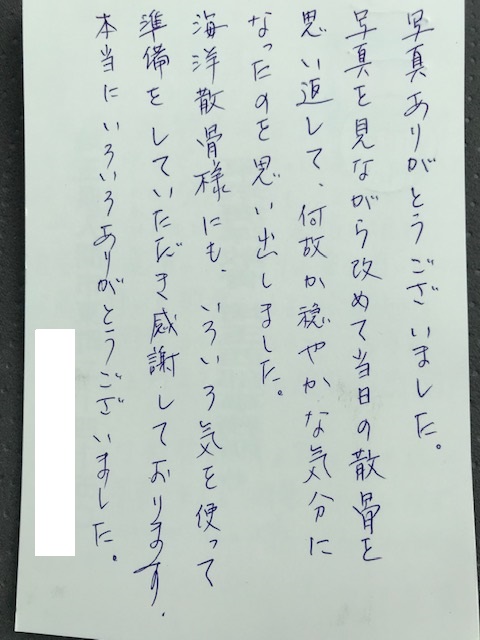 写真ありがとうございました。
写真を見ながら改めて当日の散骨を
思い返して、何故か穏やかな気分に
なったのを思い出しました。
海洋散骨様にも、いろいろ気を使って
準備をしていただき感謝しております.
本当にいろいろありがとうございました。